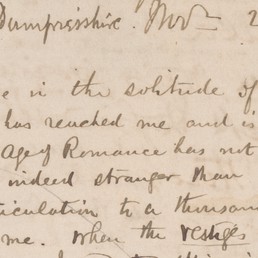 Dumfriesshire. Novr 2
e in the solitude of
has reached me and is
Age of Romance has not
indeed stranger than
iculation to a thousan
me. When the vestiges